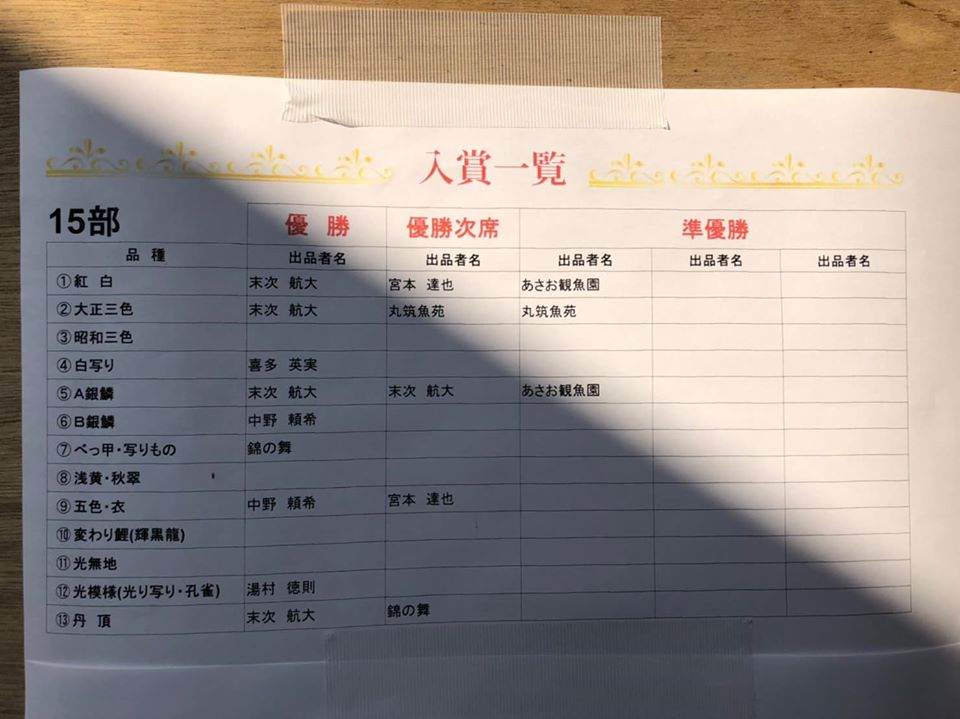 入賞一覧
15部 優 勝 優勝次席 準優勝
品 種 出品者名 出品者名 出品者名 出品者名 出品者名
①紅 白 末次 航大 宮本 達也 あさお観魚園
②大正三色 末次 航大 丸筑魚苑 丸筑魚苑
③昭和三色
④白写り 喜多 英実
⑤A銀鱗 末次 航大 末次 航大 あさお観魚園
⑥B銀鱗 中野 頼希
⑦べっ甲・写りもの 錦の舞
⑧浅黄・秋翠
⑨五色・衣 中野 頼希 宮本 達也
⑩変わり鯉(輝黒龍)
⑪光無地
⑫光模様(光り写り・孔雀) 湯村 徳則
⑬丹 頂 末次 航大 錦の舞